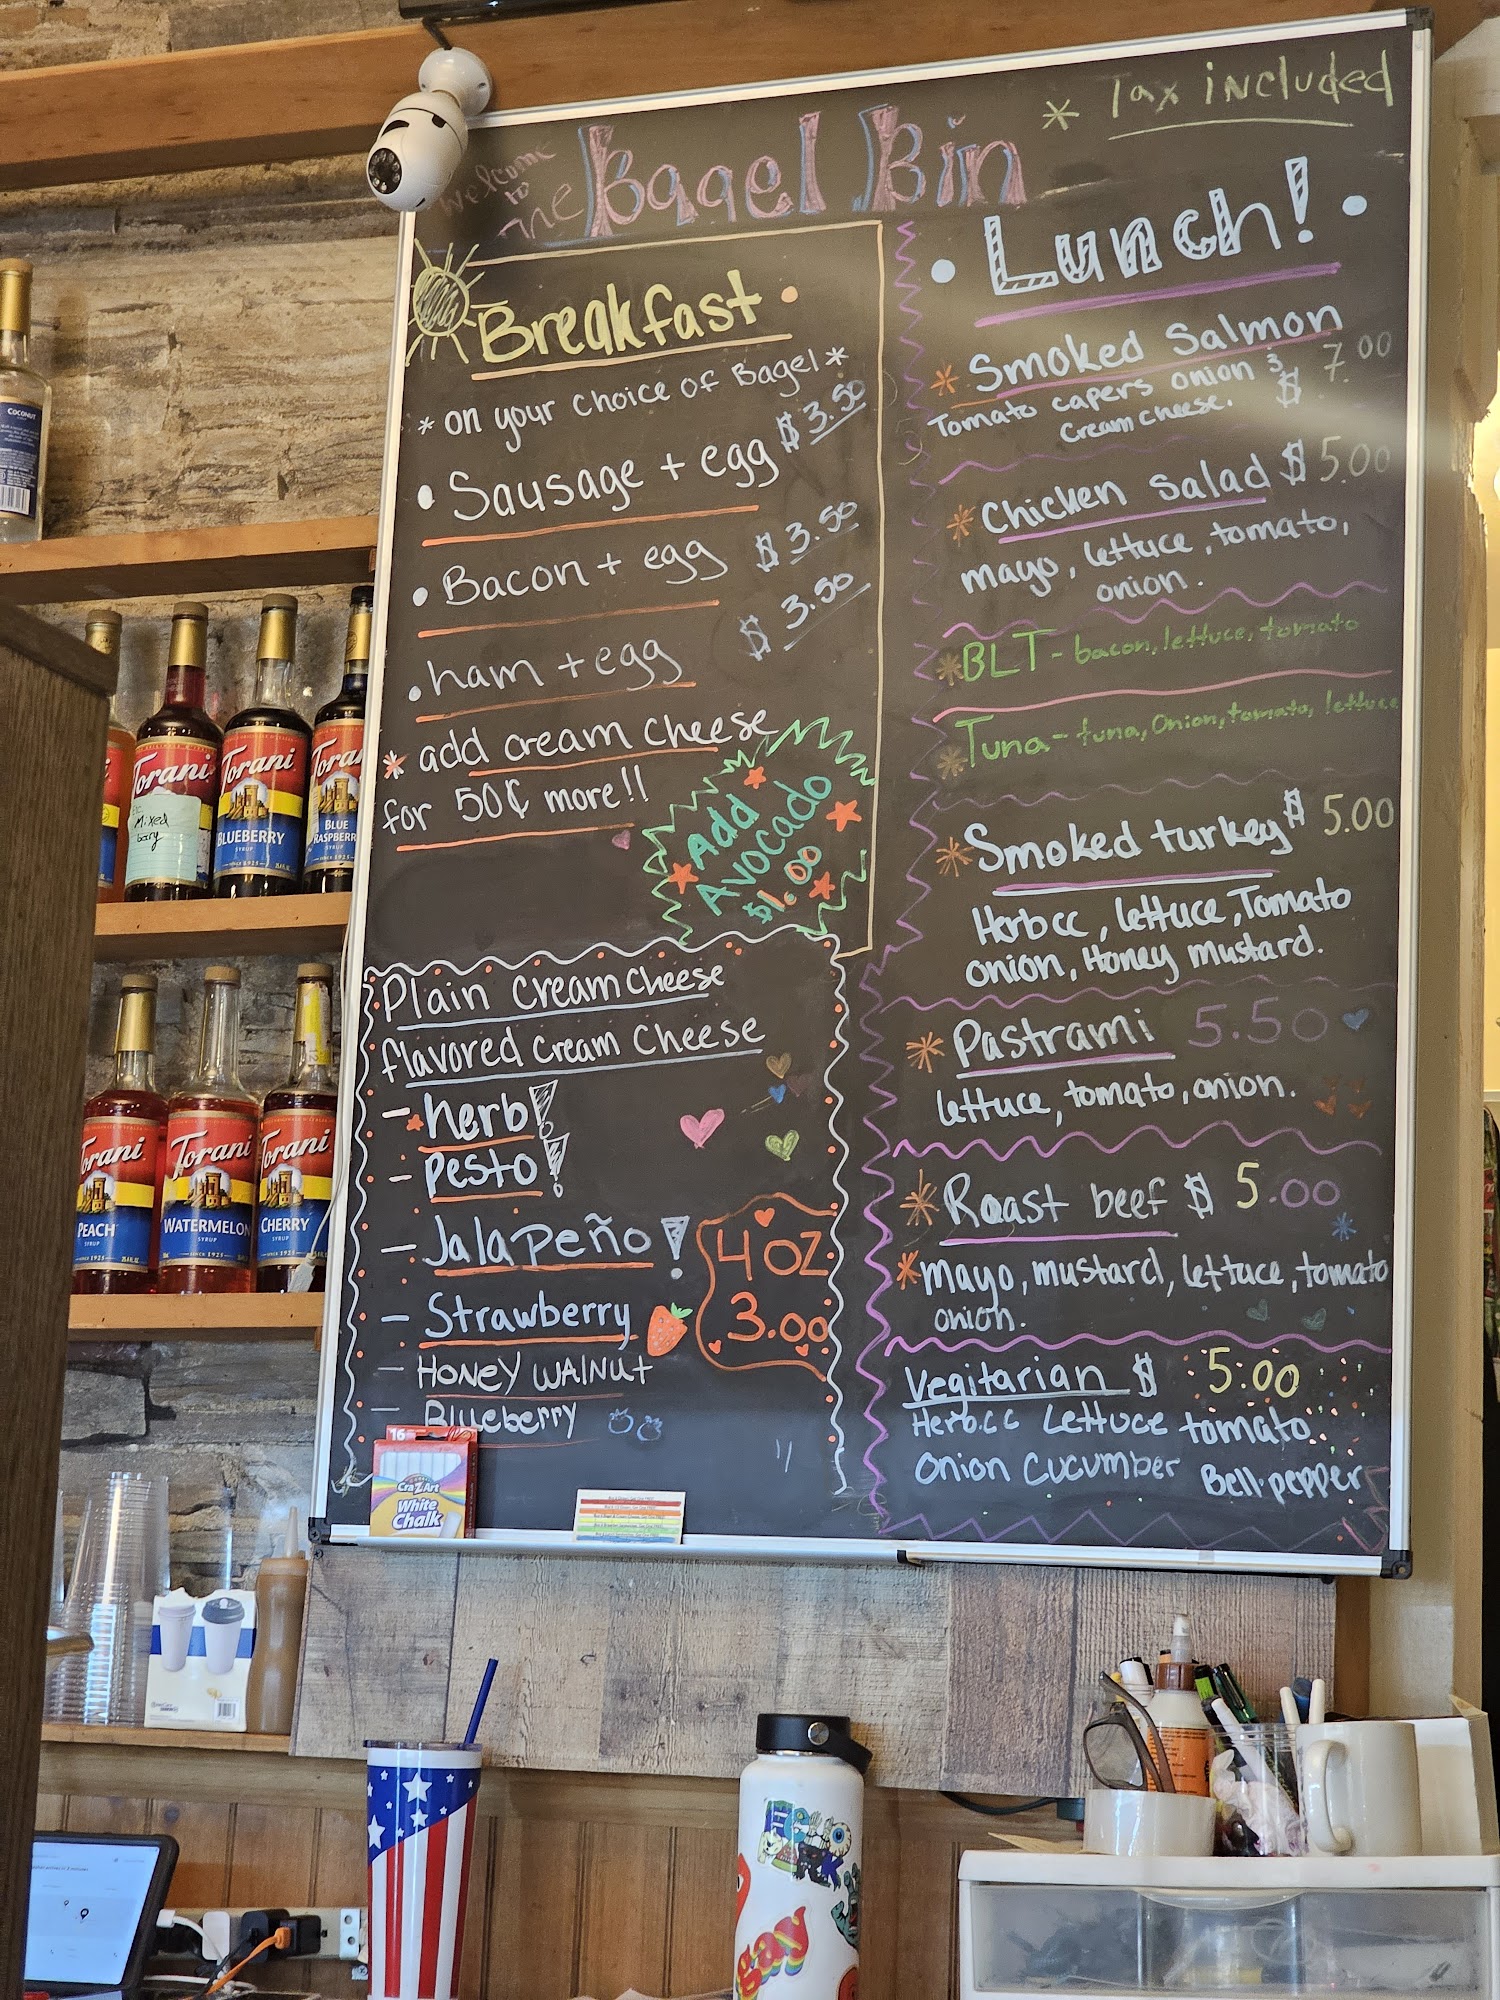 * Tax included
Welcome
to
The Bagel Bin
Breakfast
* on your choice of Bagel *
• Sausage + egg $3.50
• Bacon + egg $3.50
• ham + egg $3.50
* add cream cheese
for 50¢ more!!
Add
Avocado
$1.00
Plain cream cheese
flavored cream cheese
- herb!
- Pesto!
- Jalapeño!
- Strawberry
- Honey Walnut
- Blueberry
4 oz
3.00
• Lunch! •
* Smoked Salmon
Tomato capers onion &
cream cheese. $ 7.00
* Chicken Salad $ 5.00
mayo, lettuce, tomato,
onion.
* BLT - bacon, lettuce, tomato
* Tuna - tuna, onion, tomato, lettuce
* Smoked turkey $ 5.00
Herb cc, lettuce, Tomato
onion, Honey mustard.
* Pastrami 5.50
lettuce, tomato, onion.
* Roast beef $ 5.00
* mayo, mustard, lettuce, tomato
onion.
Vegitarian $ 5.00
Herb.cc Lettuce tomato
Onion Cucumber Bell.pepper
COCONUT
Torani
Mixed
berry
Torani
BLUEBERRY
SYRUP
Torani
BLUE
RASPBERRY
Torani
PEACH
SYRUP
Torani
WATERMELON
SYRUP
SINCE 1925
Torani
CHERRY
SYRUP
16
Cra-Z-Art
White
Chalk
gay